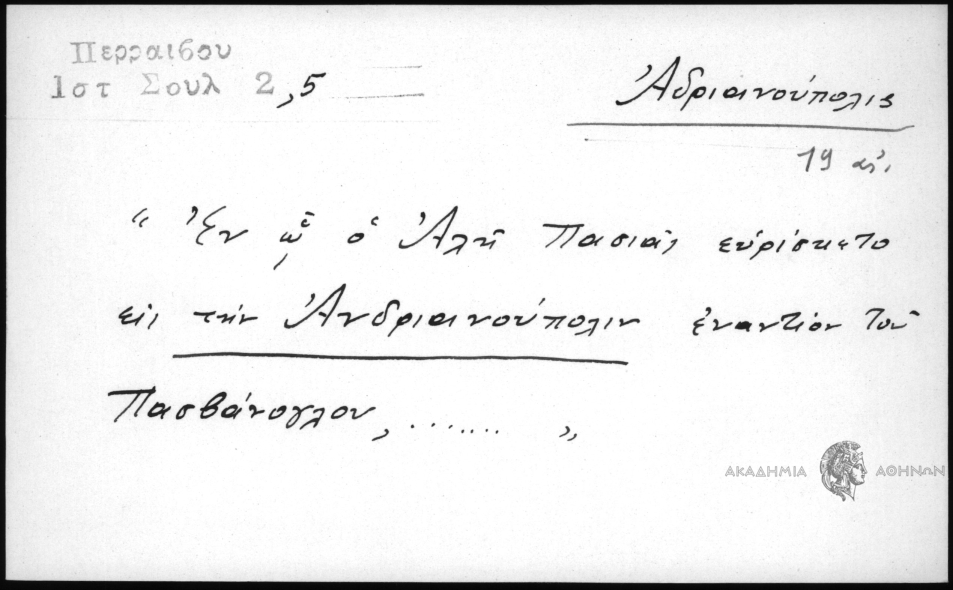 Περραιβου
Ιστ Σουλ 2,5
Ἀδριανούπολις
19 αἰ.
“ Ἐν ᾧ ὁ Ἀλῆ Πασιᾶς εὑρίσκετο
εἰς τὴν Ἀνδριανούπολιν ἐναντίον τοῦ
Πασβάνογλου, ....... ”
ΑΚΑΔΗΜΙΑ ΑΘΗΝΩΝ